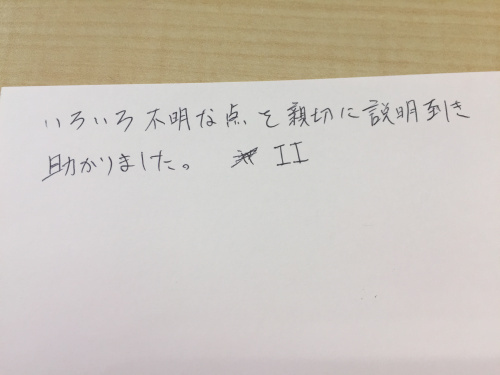 いろいろ不明な点を親切に説明到き
助かりました。 II